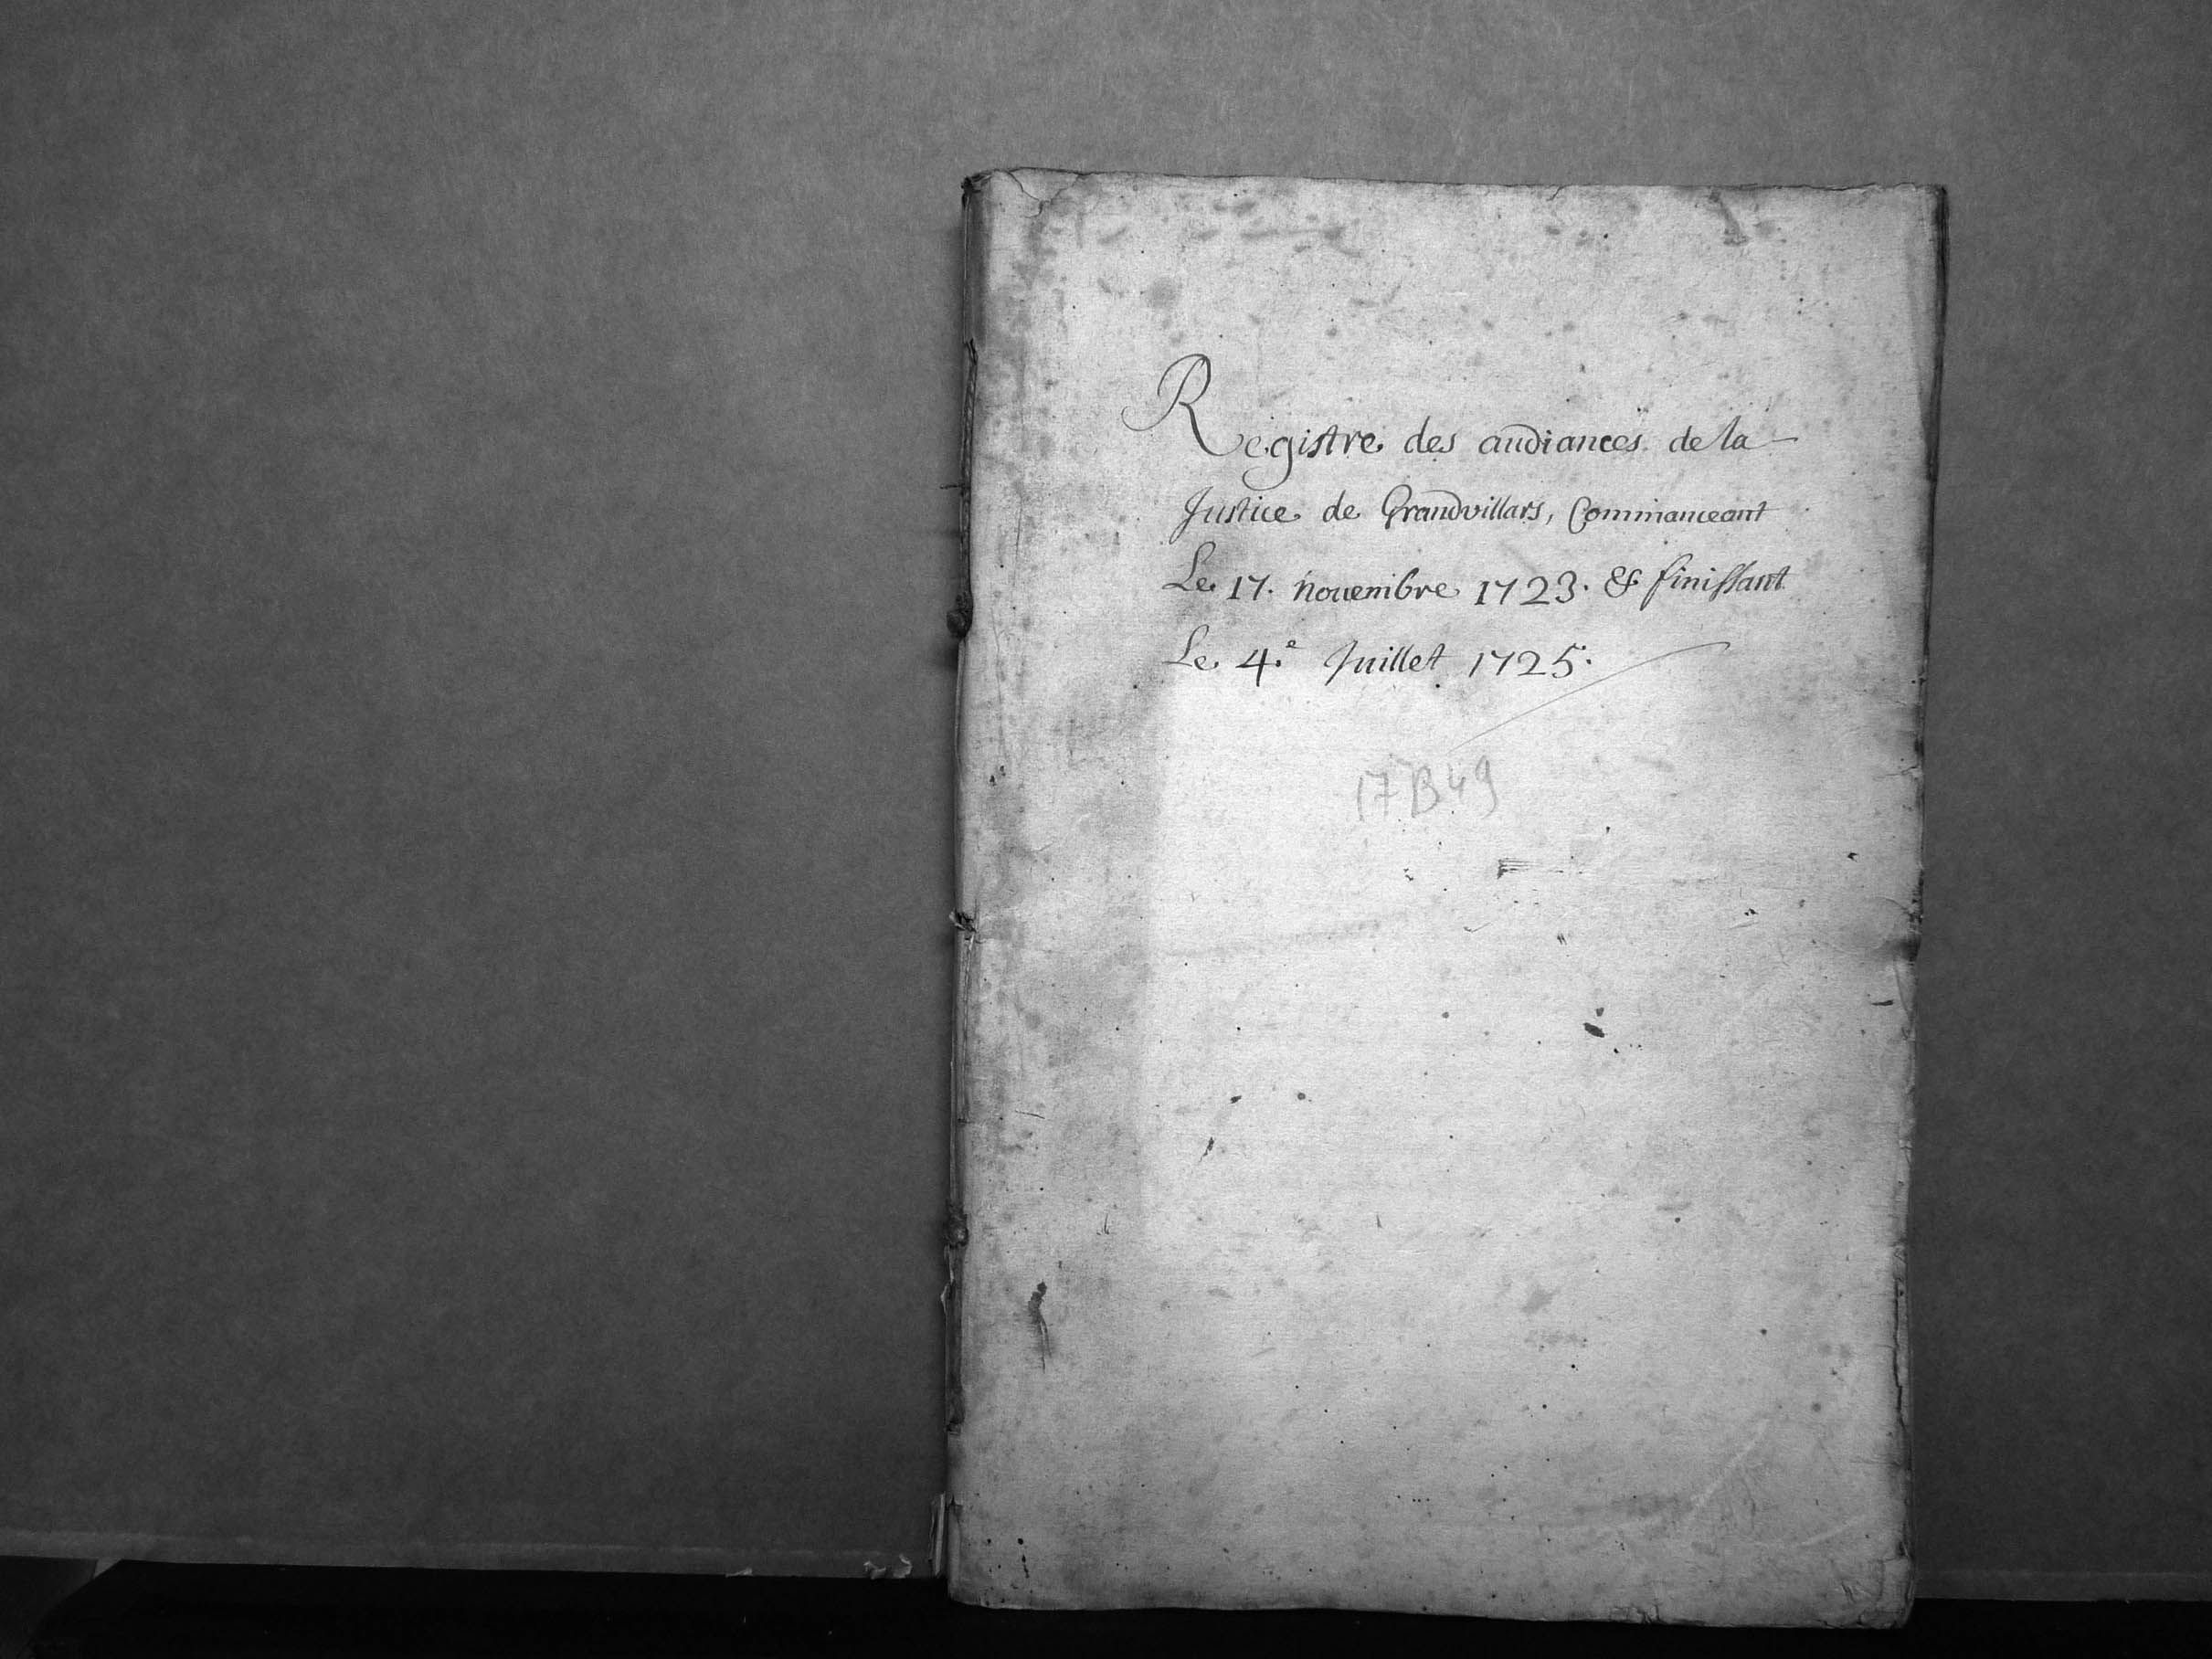 Registre des audiances de la
Justice de Grandvillars, Commanceant
Le 17. nouembre 1723. & finissant
Le 4.e Juillet 1725.
17B49